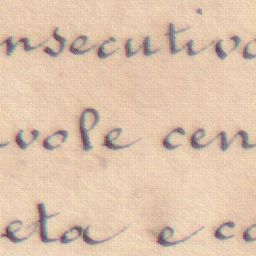 nsecutivo
vole cen
eta e co